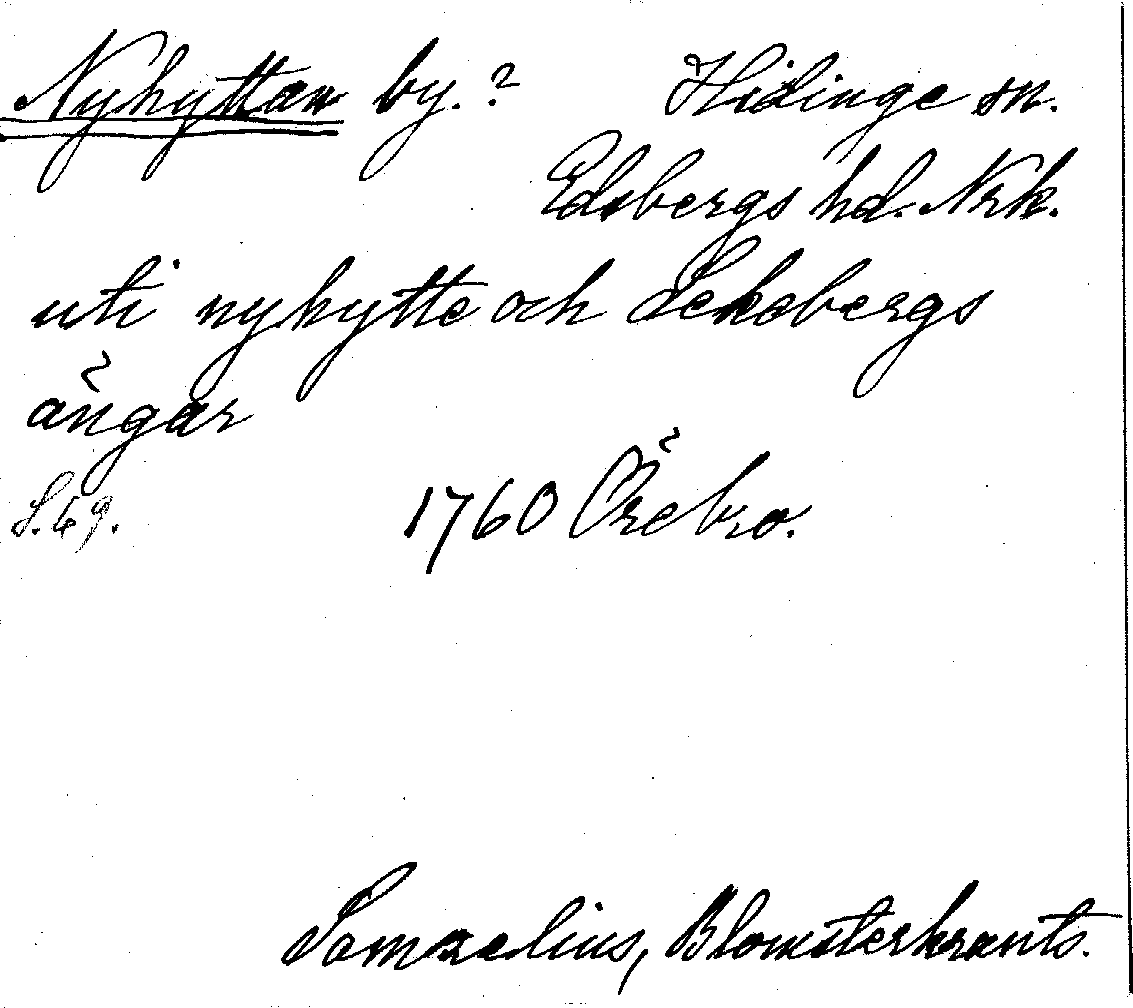 Nyhyttan by.? Hidinge sn.
Edsbergs hd. Nrk.
uti nyhytte och Lekebergs
ängar
S. 69. 1760 Örebro.
Samzelius, Blomsterkrants.